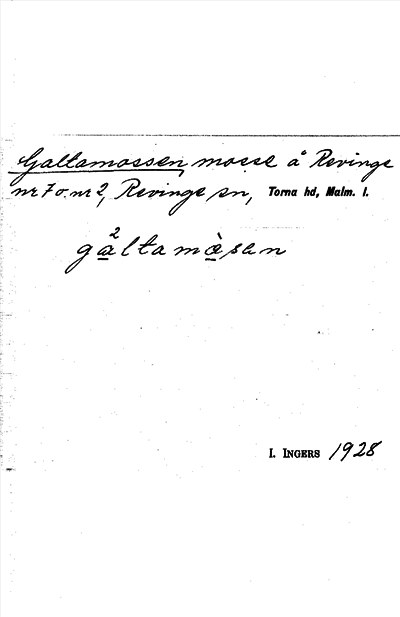 Galtamossen, mosse å Revinge
nr 7 o. nr 2, Revinge sn, Torna hd, Malm. l.
2
galtamòsan
I. INGERS 1928